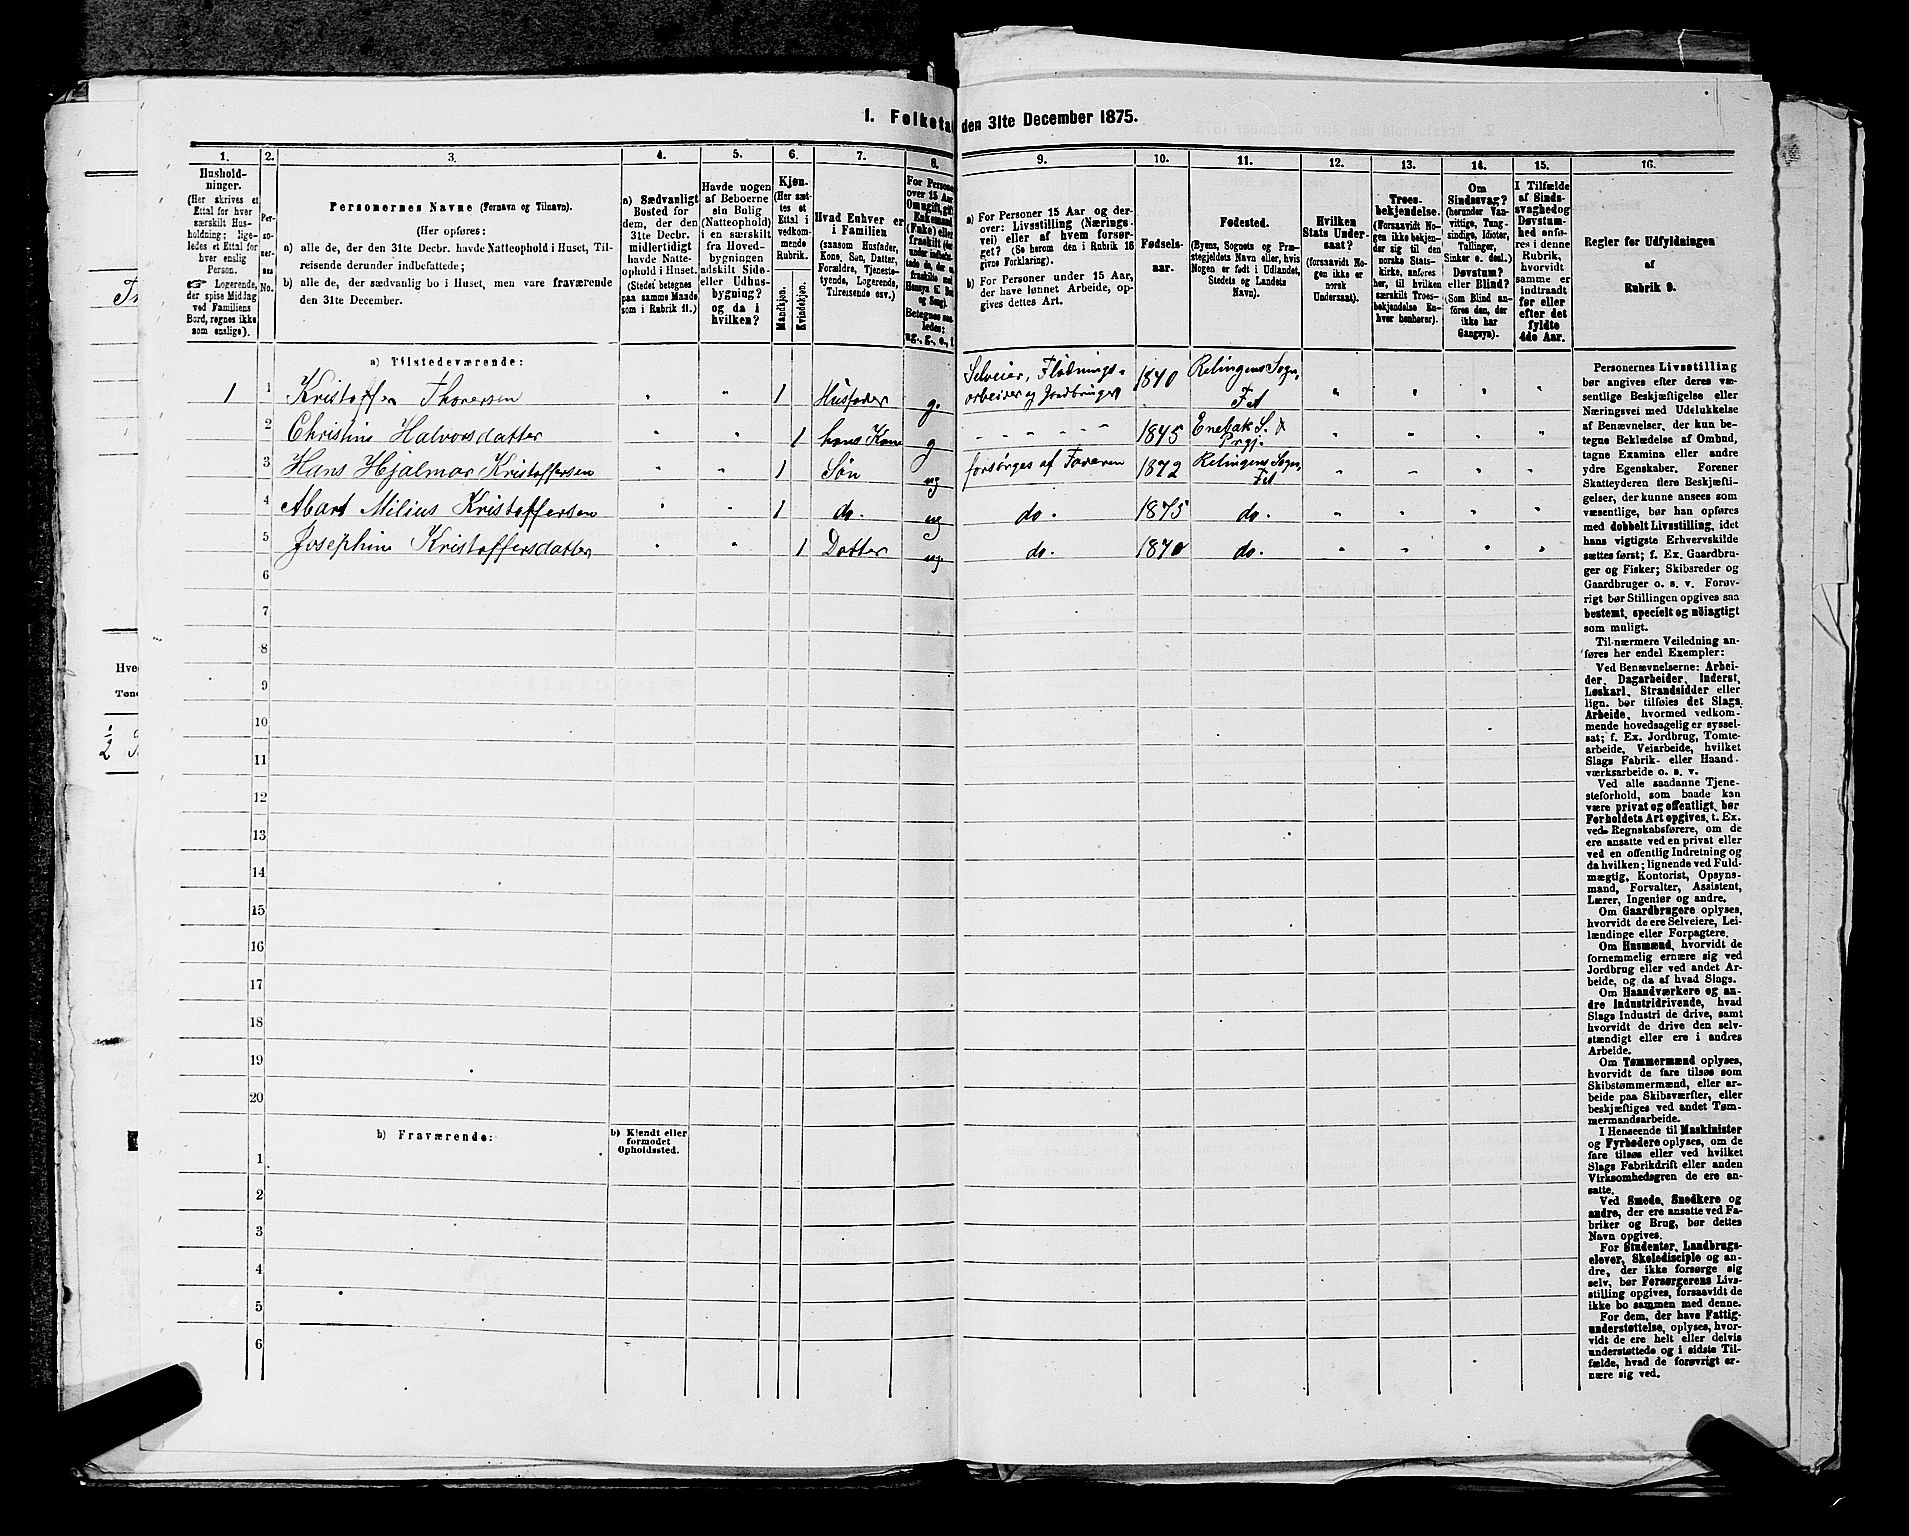 1. Folketal den 31te December 1875.
1. 2. 3. 4. 5. 6. 7. 8. 9. 10. 11. 12. 13. 14. 15. 16.
Hushold-
ninger.
(Her skrives et
Ettal for hver
særskilt Hus-
holdning; lige-
ledes et Ettal for
hver enslig
Person.
☞ Logerende,
der spise Middag
ved Familiens
Bord, regnes ikke
som enslige).
Per-
so-
ner-
nes
No.
Personernes Navne (Fornavn og Tilnavn).
(Her opføres:
a) alle de, der den 31te Decbr. havde Natteophold i Huset, Til-
reisende derunder indbefattede;
b) alle de, der sædvanlig bo i Huset, men vare fraværende
den 31te December.
a) Sædvanligt
Bosted for
dem, der den
31te Decbr.
midlertidigt
havde Natte-
ophold i Huset.
(Stedet betegnes
paa samme Maade
som i Rubrik 11.)
Havde nogen
af Beboerne
sin Bolig
(Natteophold)
i en særskilt
fra Hoved-
bygningen
adskilt Side-
eller Udhus-
bygning?
og da i
hvilken?
Kjøn.
(Her sæt-
tes et
Ettal i
vedkom-
mende
Rubrik.
Mandkjøn.
Kvindekjøn.
Hvad Enhver er
i Familien
(saasom Husfader,
Kone, Søn, Datter,
Forældre, Tjeneste-
tyende, Logerende,
Tilreisende osv.)
For Personer
over 15 Aar
Om ugift, gift
Enkemand
(Enke) eller
fraskilt
Betegnes saa-
ledes:
ug., g., e., f.
a) For Personer 15 Aar og der-
over: Livsstilling (Nærings-
vei) eller af hvem forsør-
get? (Se herom den i Rubrik 16
givne Forklaring).
b) For Personer under 15 Aar,
der have lønnet Arbeide, op-
gives dettes Art.
Fødsels-
aar.
Fødested.
(Byens, Sognets og Præ-
stegjeldets Navn eller, hvis
Nogen er født i Udlandet,
Stedets og Landets
Navn).
Hvilken
Stats Under-
saat?
(forsaavidt No-
gen ikke er
norsk
Undersaat).
Troes-
bekjendelse.
(Forsaavidt No-
gen ikke bekjen-
der sig til den
norske Stats-
kirke, anføres
her, til hvilken
særskilt Troes-
bekjendelse En-
hver henhører).
Om
Sindssvag?
(herunder Van-
vittige, Tung-
sindige, Idioter,
Tullinger,
Sinker o. desl.)
Døvstum?
eller Blind?
(Som Blind an-
føres den, der
ikke har
Gangsyn).
I Tilfælde
af Sinds-
svaghed og
Døvstum-
hed anfø-
res i denne
Rubrik,
hvorvidt
samme er
indtraadt
før eller
efter det
fyldte
4de Aar.
Regler for Udfyldningen
af
Rubrik 9.
a) Tilstedeværende:
1 1 Kristoffer Thoresen " " 1 Husfader g. Selveier, Flødnings-
arbeider og Jordbruger 1840 Relingens Sogn,
Fet " " " "
2 Christine Halvorsdatter " " 1 hans Kone g - - - - - 1845 Enebak S. &
Prgj. " " " "
3 Hans Hjalmar Kristoffersen " " 1 Søn ug forsörges af Faderen 1872 Relingens Sogn,
Fet " " " "
4 Abart Milius Kristoffersen " " 1 do. ug do. 1875 do. " " " "
5 Josephine Kristoffersdatter " " 1 Datter ug do. 1870 do. " " " "
6
7
8
9
10
11
12
13
14
15
16
17
18
19
20
b) Fraværende:
b) Kjendt eller
formodet
Opholdssted.
1
2
3
4
5
6
Personernes Livsstilling
bør angives efter deres væ-
sentlige Beskjæftigelse eller
Næringsvei med Udelukkelse
af Benævnelser, der kun be-
tegne Beklædelse af Ombud,
tagne Examina eller andre
ydre Egenskaber. Forener
Skatteyderen flere Beskjæfti-
gelser, der kunne ansees som
væsentlige, bør han opføres
med dobbelt Livsstilling, idet
hans vigtigste Erhvervskilde
sættes først; f. Ex. Gaardbru-
ger og Fisker; Skibsreder og
Gaardbruger o. s. v. Forøv-
rigt bør Stillingen opgives saa
bestemt, specielt og nöiagtigt
som muligt.
Til nærmere Veiledning an-
føres her endel Exempler:
Ved Benævnelserne: Arbei-
der, Dagarbeider, Inderst,
Løskarl, Strandsidder eller
lign. bør tilføies det Slags
Arbeide, hvormed vedkom-
mende hovedsagelig er syssel-
sat; f. Ex. Jordbrug, Tomte-
arbeide, Veiarbeide, hvilket
Slags Fabrik- eller Haand-
værksarbeide o. s. v.
Ved alle saadanne Tjene-
steforhold, som baade kan
være privat og offentligt, bør
Forholdets Art opgives, t. Ex.
ved Regnskabsførere, om de
ere ansatte ved en privat eller
ved en offentlig Indretning og
da hvilken; lignende ved Fuld-
mægtig, Kontorist, Opsyns-
mand, Forvalter, Assistent,
Lærer, Ingeniør og andre.
Om Gaardbrugere oplyses,
hvorvidt de ere Selveiere, Lei-
lændinge eller Forpagtere.
Om Husmænd, hvorvidt de
fornemmelig ernære sig ved
Jordbrug eller ved andet Ar-
beide, og da af hvad Slags.
Om Haandværkere og an-
dre Industridrivende, hvad
Slags Industri de drive, samt
hvorvidt de drive den selv-
stændigt eller ere i andres
Arbeide.
Om Tømmermænd oplyses,
hvorvidt de fare tilsøs som
Skibstømmermænd, eller ar-
beide paa Skibsværfter, eller
beskjæftiges ved andet Tøm-
mermandsarbeide.
I Henseende til Maskinister
og Fyrbødere oplyses, om de
fare tilsøs eller ved hvilket
Slags Fabrikdrift eller anden
Virksomhedsgren de ere an-
satte.
Ved Smede, Snedkere og
andre, der ere ansatte ved Fa-
briker og Brug, bør dettes
Navn opgives.
For Studenter, Landbrugs-
elever, Skoledisciple og an-
dre, der ikke forsørge sig
selv, bør Forsørgerens Livs-
stilling opgives, forsaavidt de
ikke bo sammen med denne.
For dem, der have Fattig-
understøttelse, oplyses, hvor-
vidt de ere helt eller delvis
understøttede og i sidste Til-
fælde, hvad de forøvrigt er-
nære sig ved.